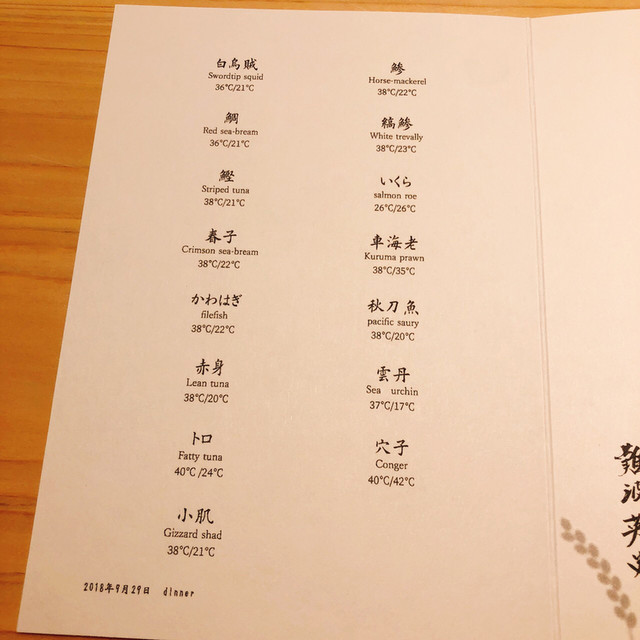 白烏賊
Swordtip squid
36℃/21℃
鯛
Red sea-bream
36℃/21℃
鰹
Striped tuna
38℃/21℃
春子
Crimson sea-bream
38℃/22℃
かわはぎ
filefish
38℃/22℃
赤身
Lean tuna
38℃/20℃
トロ
Fatty tuna
40℃/24℃
小肌
Gizzard shad
38℃/21℃
鯵
Horse-mackerel
38℃/22℃
縞鯵
White trevally
38℃/23℃
いくら
salmon roe
26℃/26℃
車海老
Kuruma prawn
38℃/35℃
秋刀魚
pacific saury
38℃/20℃
雲丹
Sea urchin
37℃/17℃
穴子
Conger
40℃/42℃
2018年9月29日 dinner
難波英史